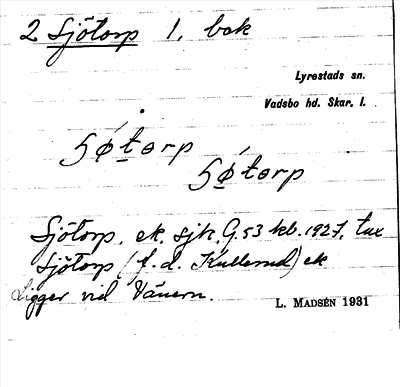 2 Sjötorp 1. bok
Lyrestads sn.
Vadsbo hd. Skar. l.
Sjötorp, ek. sjk, G. 53 kb. 1927, tax
Sjötorp (f. d. Kullerud) ek
Ligger vid Vänern.
L. MADSÉN 1931